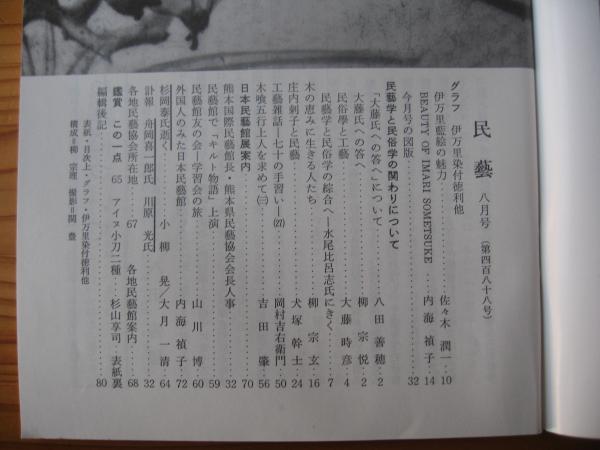 民藝 八月号（第四百八十八号）
グラフ 伊万里染付徳利他
伊万里藍絵の魅力……佐々木潤一…10
BEAUTY OF IMARI SOMETSUKE……内海禎子…14
今月号の図版……32
民藝学と民俗学の関わりについて
「大藤氏への答へ」について……八田善穂…2
大藤氏への答へ……柳宗悦…2
民俗學と工藝……大藤時彦…4
民藝学と民俗学の綜合へ―水尾比呂志氏にきく…7
木の恵みに生きる人たち……柳宗玄…16
庄内刺子と民藝……犬塚幹士…24
工藝雑話―七十の手習い―(27)……岡村吉右衛門…50
木喰五行上人を求めて(三)……吉田肇…56
日本民藝館展案内……70
熊本国際民藝館長・熊本県民藝協会会長人事……32
民藝館で「キルト物語」上演……59
民藝館友の会―学習会の旅……山川博…60
外国人のみた日本民藝館……内海禎子…72
杉岡泰氏逝く……小柳晃／大月一清…64
訃報 舟岡喜一郎氏 川原光氏……32
各地民藝協会所在地……67 各地民藝館案内……68
鑑賞 この一点 65 アイヌ小刀二種……杉山享司…表紙裏
編輯後記……80
表紙・月次上・グラフ・伊万里染付徳利他
構成＝柳宗理 撮影＝関豊